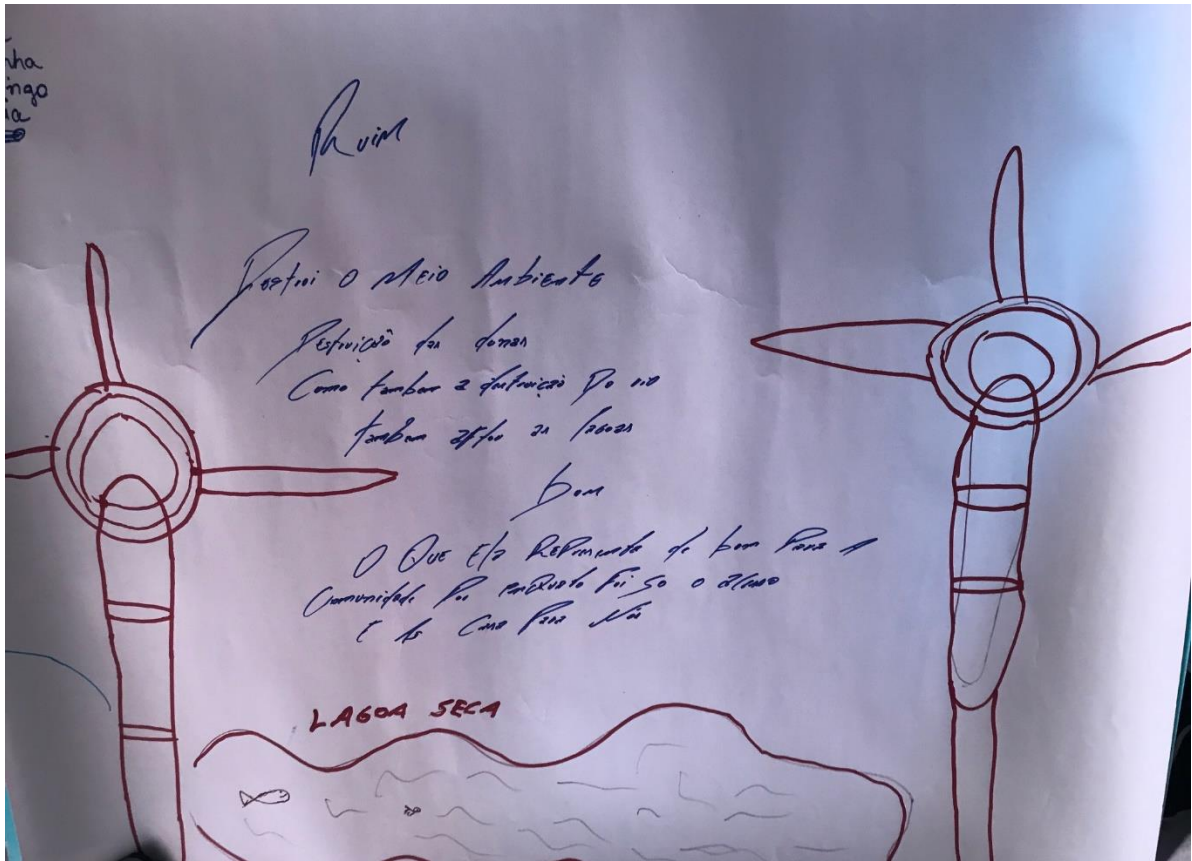 nha
ngo
ia
Ruim
Destroi o Meio Ambiente
Destruição das donas
Como tambem a destruição Do rio
tambem as lagoas
bom
O Que Ela Representa de bom Para A
Comunidade Por enquanto Foi So o
E As Para Nós
LAGOA SECA